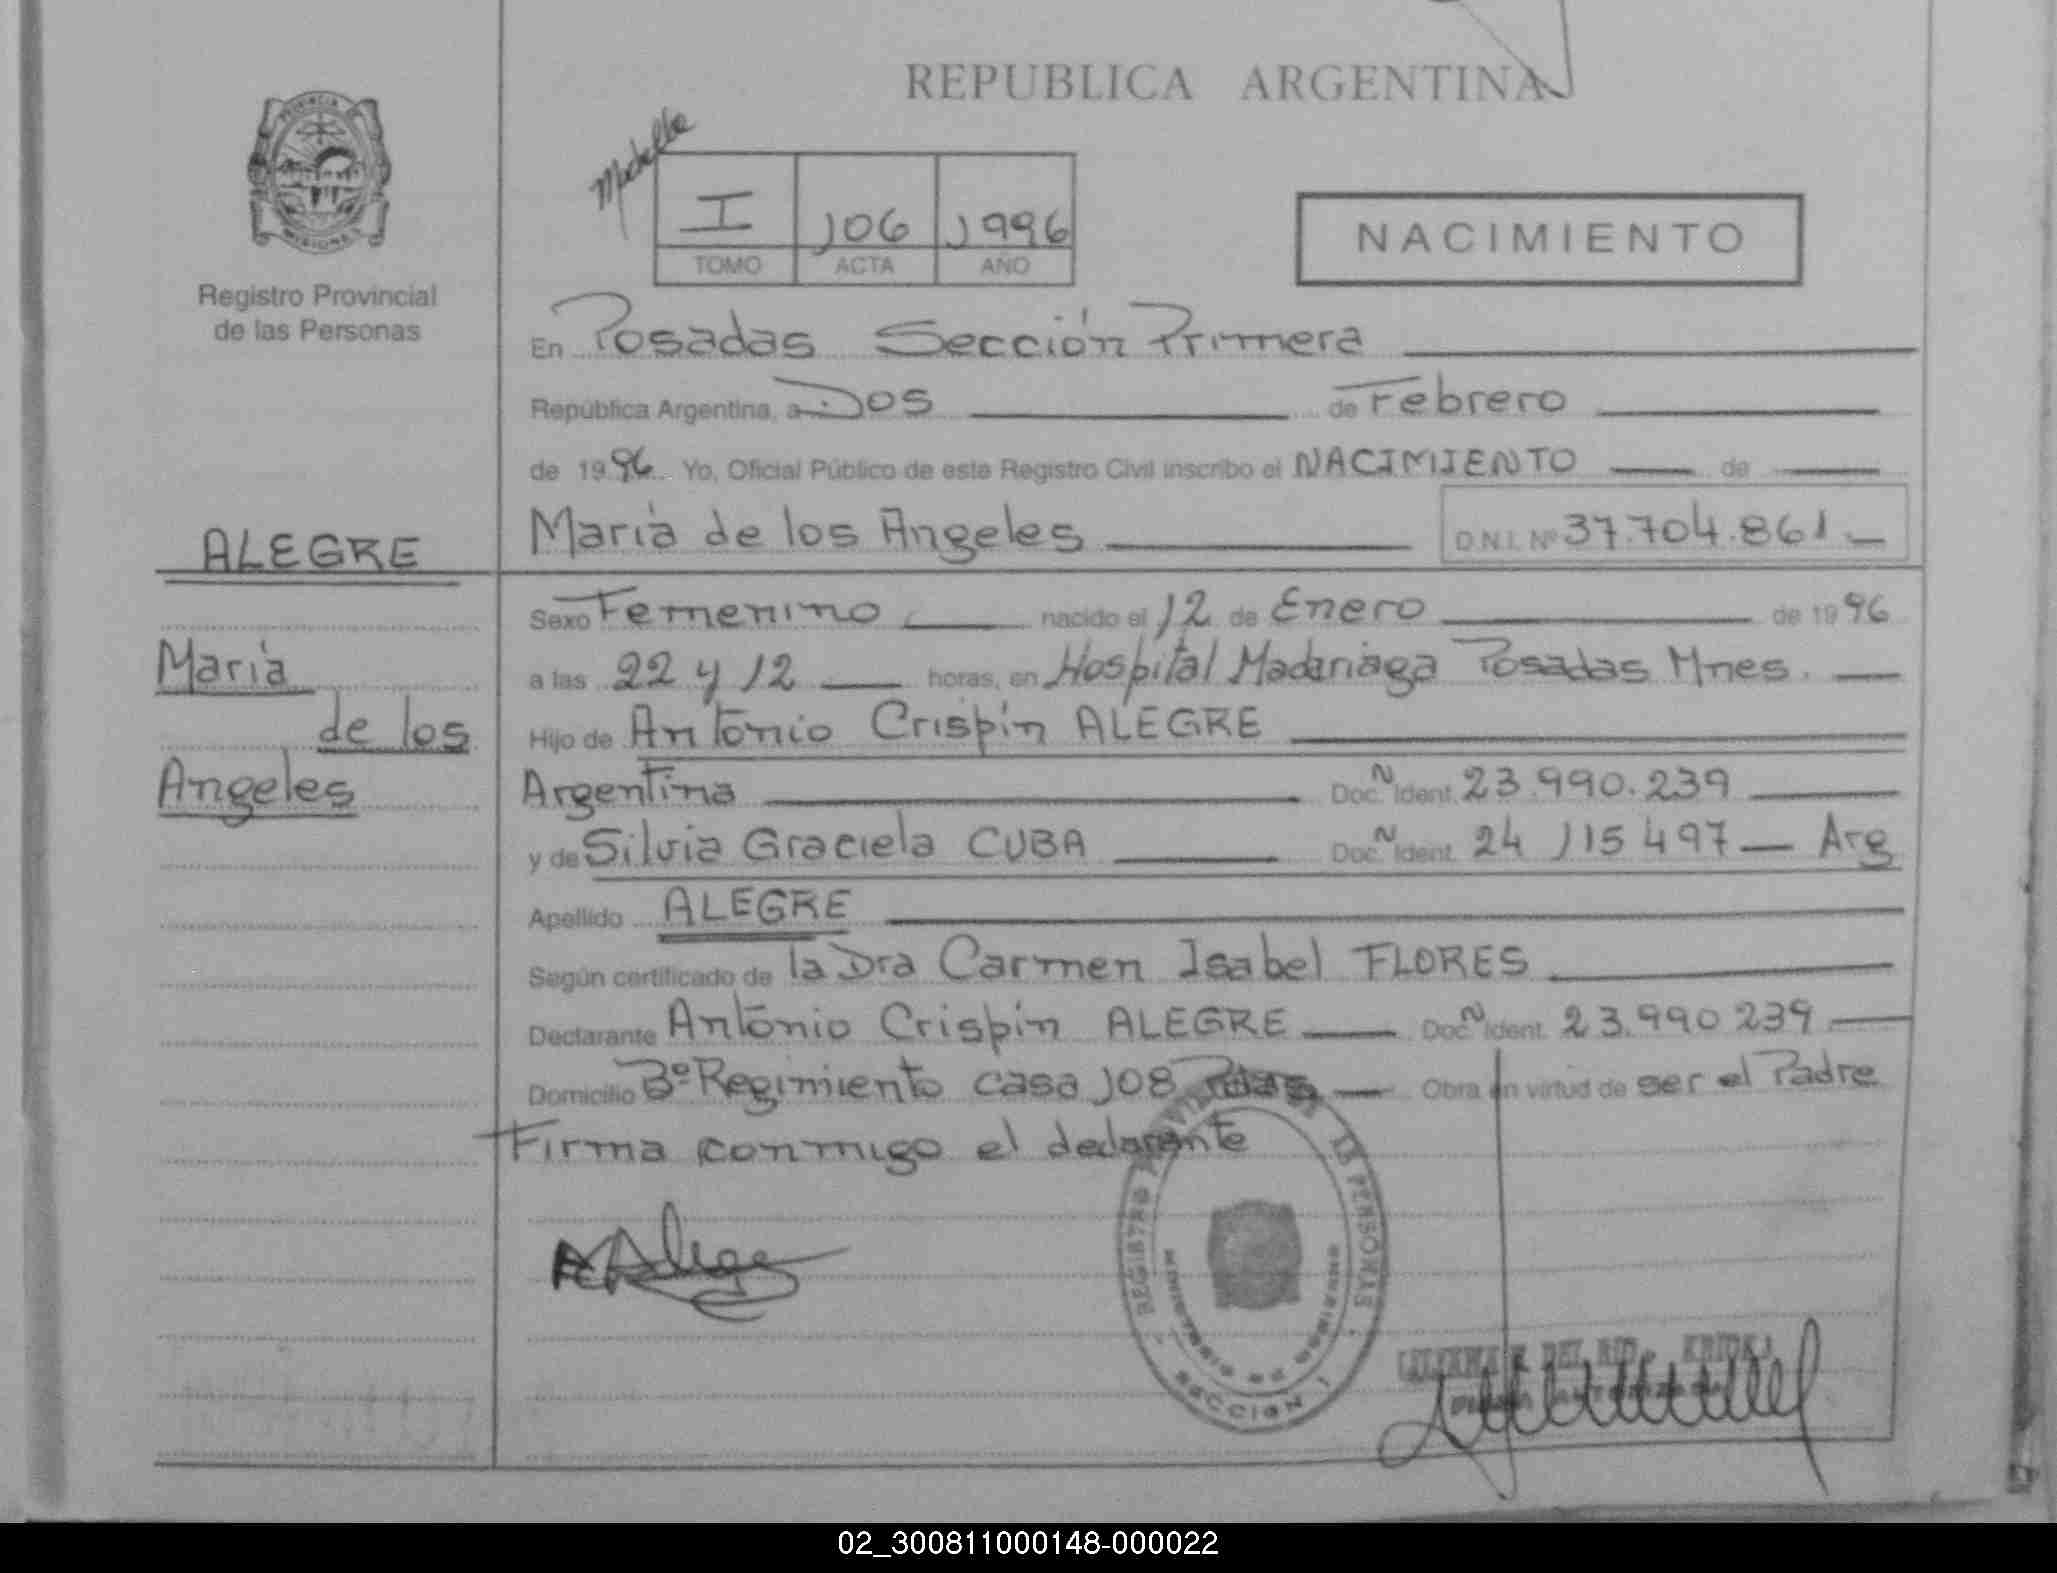 REPUBLICA ARGENTINA
PROVINCIA
MISIONES
Registro Provincial
de las Personas
I 106 1996
TOMO ACTA AÑO
NACIMIENTO
En Posadas Sección Primera
República Argentina, a Dos de Febrero
de 1996 Yo, Oficial Público de este Registro Civil inscribo el NACIMIENTO de
María de los Angeles D.N.I. Nº 37.704.861.-
ALEGRE
María
de los
Angeles
Sexo Femenino nacido el 12 de Enero de 1996
a las 22 y 12 horas, en Hospital Madariaga Posadas Mnes.
Hijo de Antonio Crispín ALEGRE
Argentina Doc. N Ident. 23.990.239
y de Silvia Graciela CUBA Doc. N Ident. 24 115 497 — Arg
Apellido ALEGRE
Según certificado de la Dra Carmen Isabel FLORES
Declarante Antonio Crispín ALEGRE Doc. N Ident. 23.990 239
Domicilio 3º Regimiento casa 108 Pdas Obra en virtud de ser el Padre
Firma conmigo el declarante
REGISTRO PROVINCIAL DE LAS PERSONAS
MINISTERIO DE GOBIERNO
SECCION 1
DEL RIO
02_300811000148-000022